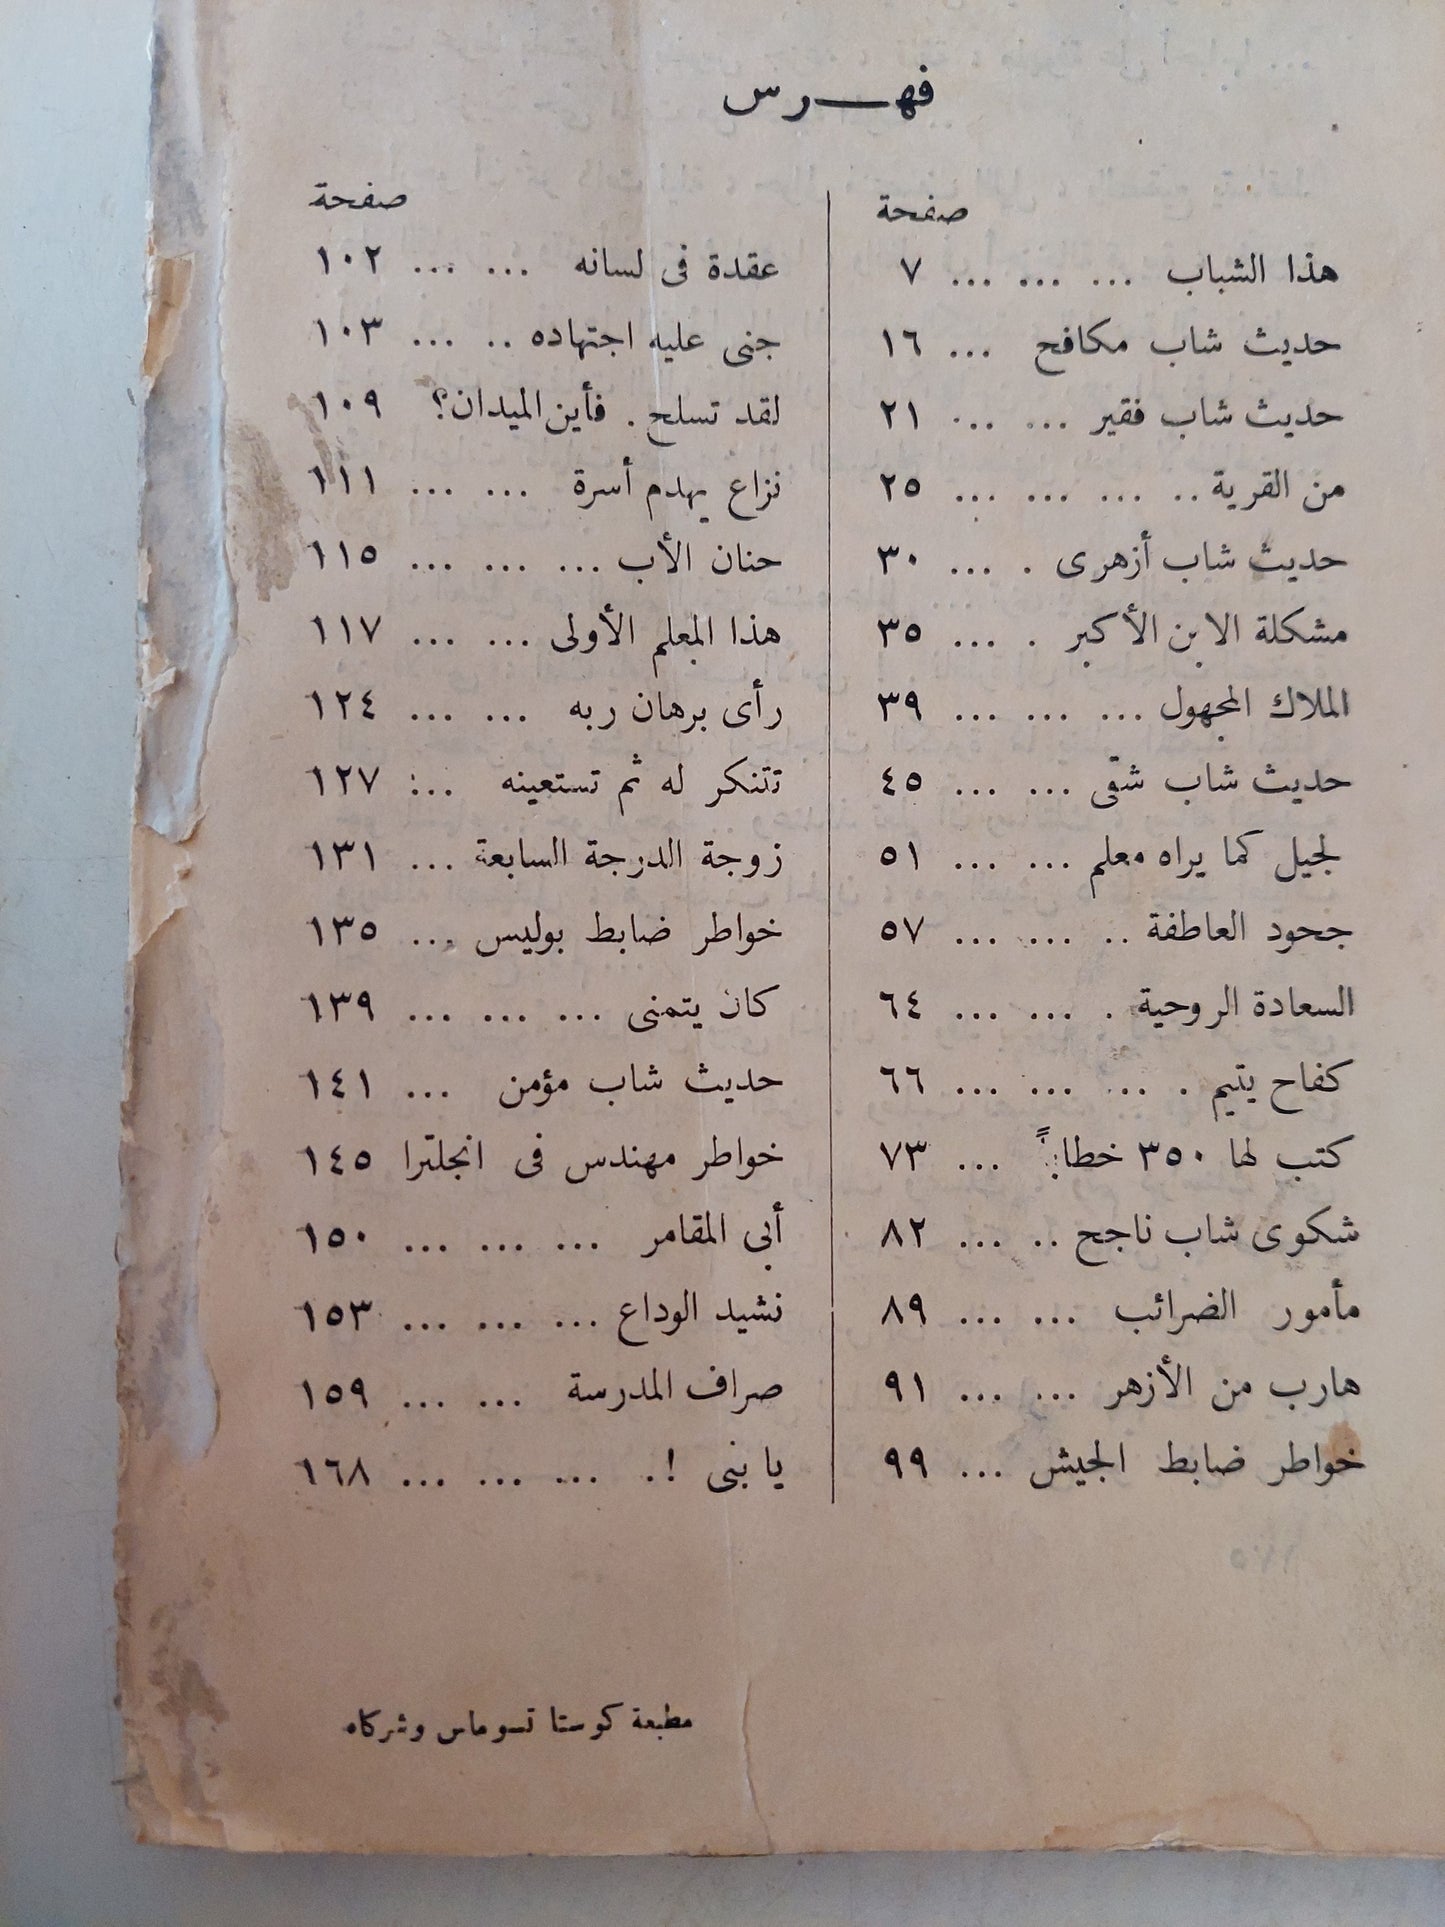 فهرس
صفحة
هذا الشباب ... ... ... ٧
حديث شاب مكافح ... ١٦
حديث شاب فقير ... ... ٢١
من القرية .. ... ... ... ٢٥
حديث شاب أزهرى . ... ٣٠
مشكلة الابن الأكبر . ... ٣٥
الملاك المجهول ... ... ... ٣٩
حديث شاب شقى ... ... ٤٥
لجيل كما يراه معلم ... ... ٥١
جحود العاطفة .. ... ... ٥٧
السعادة الروحية . ... ... ٦٤
كفاح يتيم . ... ... ... ٦٦
كتب لها ٣٥٠ خطاباً ... ٧٣
شكوى شاب ناجح .. ... ٨٢
مأمور الضرائب ... ... ٨٩
هارب من الأزهر ... ... ٩١
خواطر ضابط الجيش ... ٩٩
صفحة
عقدة فى لسانه ... ... ١٠٢
جنى عليه اجتهاده .. ... ١٠٣
لقد تسلح . فأين الميدان؟ ١٠٩
نزاع يهدم أسرة ... ... ١١١
حنان الأب ... ... ... ١١٥
هذا المعلم الأولى ... ... ١١٧
رأى برهان ربه ... ... ١٢٤
تتنكر له ثم تستعينه ... ١٢٧
زوجة الدرجة السابعة ... ١٣١
خواطر ضابط بوليس ... ١٣٥
كان يتمنى ... ... ... ١٣٩
حديث شاب مؤمن ... ١٤١
خواطر مهندس فى انجلترا ١٤٥
أبى المقامر ... ... ... ١٥٠
نشيد الوداع ... ... ... ١٥٣
صراف المدرسة ... ... ١٥٩
يا بنى !. ... ... ... ١٦٨
مطبعة كوستا تسوماس وشركاه